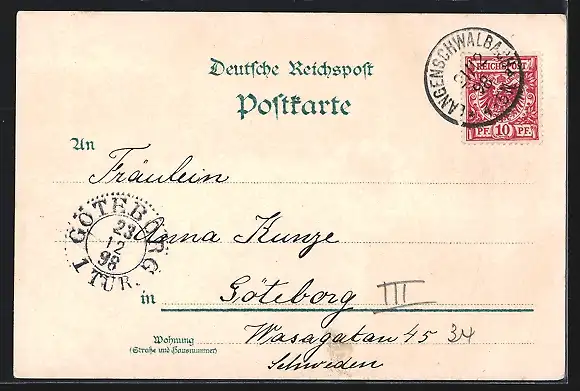 Deutsche Reichspost
Postkarte
LANGENSCHWALBACH
98
REICHSPOST
PF. 10 PF.
An
Fräulein
Anna Kunze
GÖTEBORG
23
12
98
1 TUR.
in
Göteborg III
Wohnung
(Straße und Hausnummer)
Wasagatan 45 34
Schweden